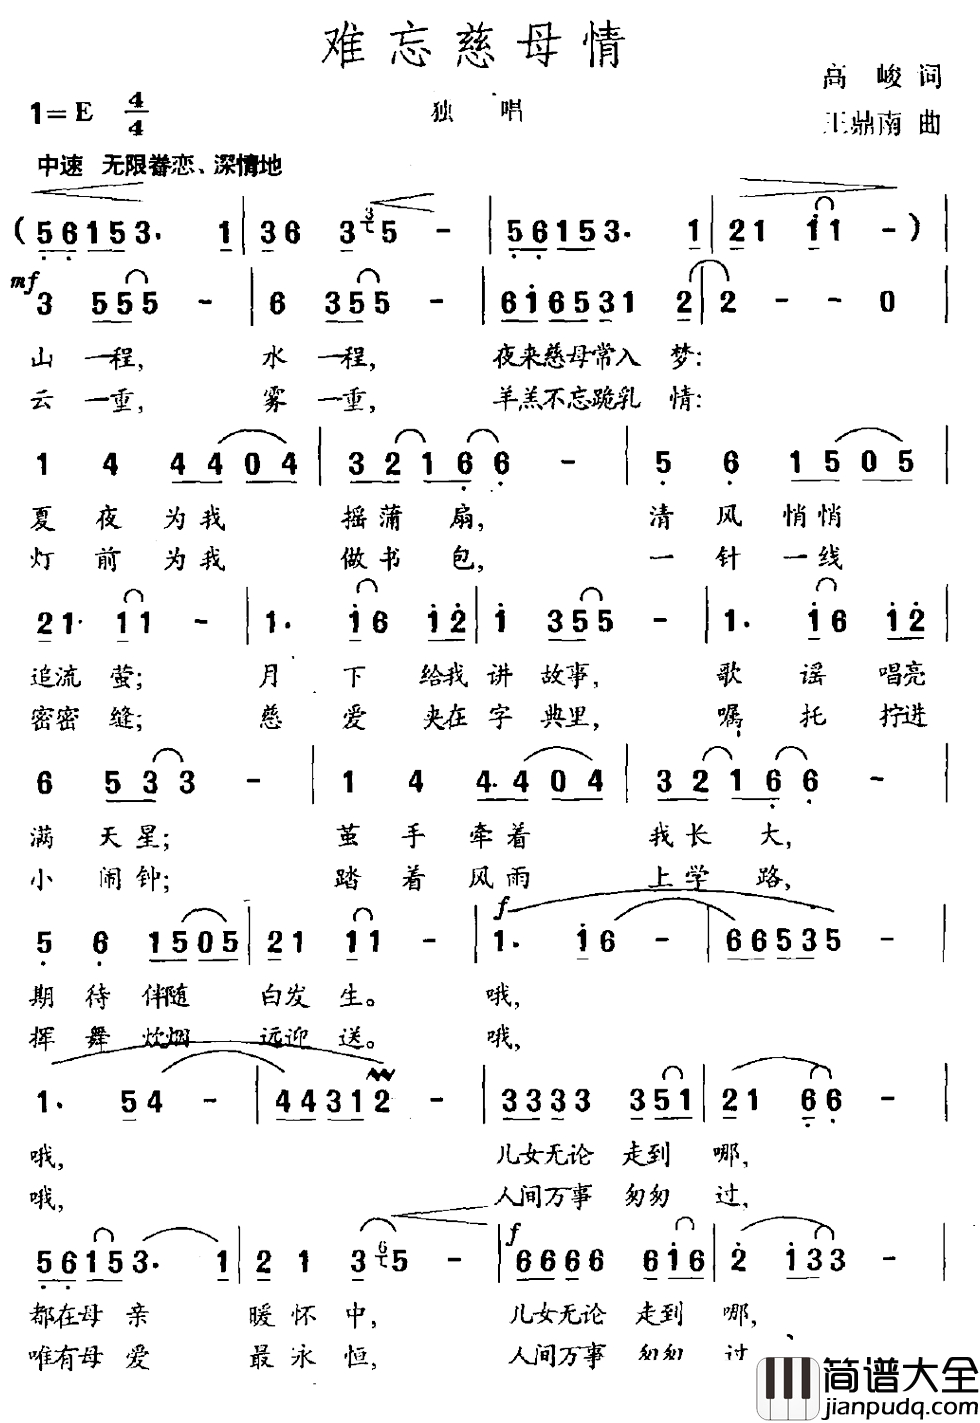 难忘慈母情
高峻词
1=E 4/4 独唱
王鼎南曲
中速 无限眷恋、深情地
( 56153. 1 | 36 3 5 - | 56153. 1 | 21 11 - ) |
mf
3 555 - | 6 355 - | 616531 2 | 2 - - 0 |
山一程, 水一程, 夜来慈母常入梦:
云一重, 雾一重, 羊羔不忘跪乳情:
1 4 4404 | 32166 - | 5 6 1505 |
夏夜为我 摇蒲扇, 清风悄悄
灯前为我 做书包, 一针一线
21. 11 - | 1. 16 12 | 1 355 - | 1. 16 12 |
追流萤; 月下给我讲故事, 歌谣唱亮
密密缝; 慈爱夹在字典里, 嘱托拧进
6 533 - | 1 4 4.404 | 32166 - |
满天星; 茧手牵着 我长大,
小闹钟; 踏着风雨 上学路,
f
5 6 1505 | 21 11 - | 1. 16 - | 665335 - |
期待伴随 白发生。 哦,
挥舞炊烟 远迎送。 哦,
1. 54 - | 44312 - | 3333 351 | 21 66 - |
哦, 儿女无论走到哪,
哦, 人间万事匆匆过,
f
56153. 1 | 2 1 3 5 - | 6666 616 | 2 133 - |
都在母亲 暖怀中, 儿女无论走到哪,
唯有母爱 最永恒, 人间万事匆匆过
简谱大全
jianpudq.com